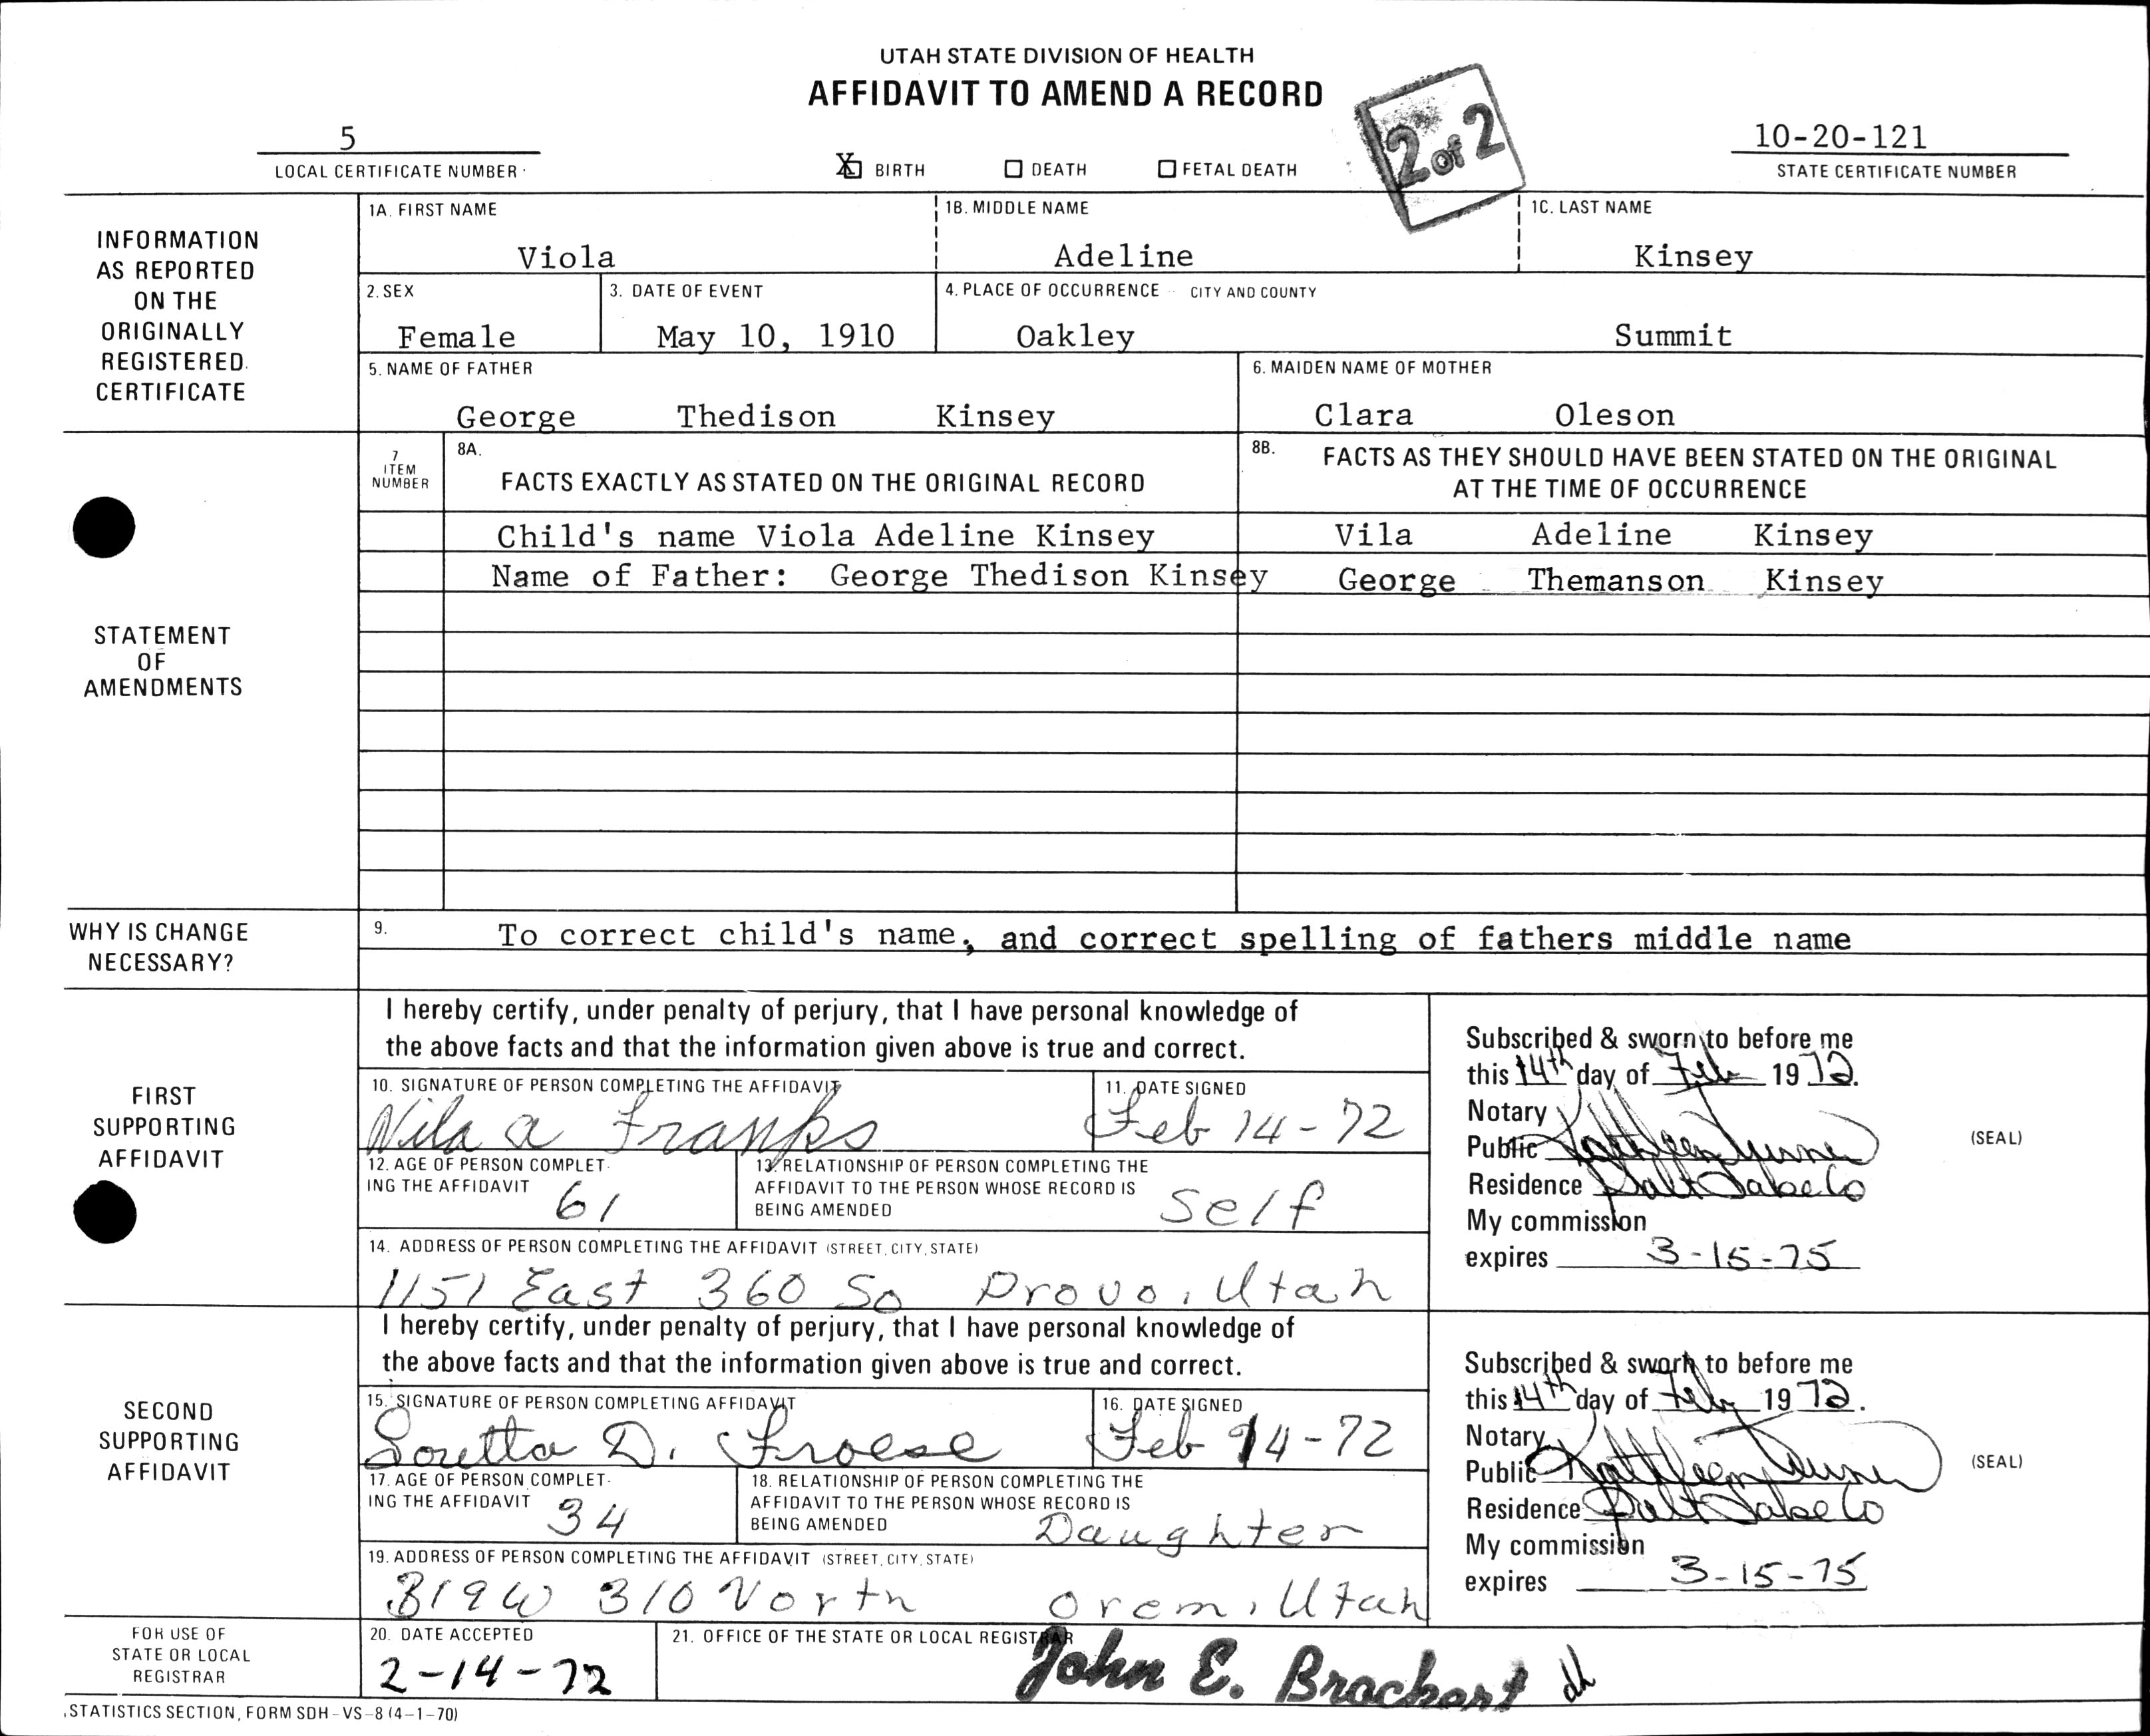 UTAH STATE DIVISION OF HEALTH
AFFIDAVIT TO AMEND A RECORD
2 of 2
5
LOCAL CERTIFICATE NUMBER
X BIRTH DEATH FETAL DEATH
10-20-121
STATE CERTIFICATE NUMBER
INFORMATION
AS REPORTED
ON THE
ORIGINALLY
REGISTERED
CERTIFICATE
1A. FIRST NAME 1B. MIDDLE NAME 1C. LAST NAME
Viola Adeline Kinsey
2. SEX 3. DATE OF EVENT 4. PLACE OF OCCURRENCE CITY AND COUNTY
Female May 10, 1910 Oakley Summit
5. NAME OF FATHER 6. MAIDEN NAME OF MOTHER
George Thedison Kinsey Clara Oleson
STATEMENT
OF
AMENDMENTS
7
ITEM
NUMBER
8A.
FACTS EXACTLY AS STATED ON THE ORIGINAL RECORD
8B. FACTS AS THEY SHOULD HAVE BEEN STATED ON THE ORIGINAL
AT THE TIME OF OCCURRENCE
Child's name Viola Adeline Kinsey Vila Adeline Kinsey
Name of Father: George Thedison Kinsey George Themanson Kinsey
WHY IS CHANGE
NECESSARY?
9. To correct child's name, and correct spelling of fathers middle name
FIRST
SUPPORTING
AFFIDAVIT
I hereby certify, under penalty of perjury, that I have personal knowledge of
the above facts and that the information given above is true and correct.
10. SIGNATURE OF PERSON COMPLETING THE AFFIDAVIT 11. DATE SIGNED
Vila A Franks Feb 14-72
12. AGE OF PERSON COMPLET-
ING THE AFFIDAVIT 61
13. RELATIONSHIP OF PERSON COMPLETING THE
AFFIDAVIT TO THE PERSON WHOSE RECORD IS
BEING AMENDED self
14. ADDRESS OF PERSON COMPLETING THE AFFIDAVIT (STREET, CITY, STATE)
1151 East 360 So Provo, Utah
Subscribed & sworn to before me
this 14th day of Feb 1972.
Notary
Public Kathleen Turner
(SEAL)
Residence Salt Lake Co
My commission
expires 3-15-75
SECOND
SUPPORTING
AFFIDAVIT
I hereby certify, under penalty of perjury, that I have personal knowledge of
the above facts and that the information given above is true and correct.
15. SIGNATURE OF PERSON COMPLETING AFFIDAVIT 16. DATE SIGNED
Loretta D. Froese Feb 14-72
17. AGE OF PERSON COMPLET-
ING THE AFFIDAVIT 34
18. RELATIONSHIP OF PERSON COMPLETING THE
AFFIDAVIT TO THE PERSON WHOSE RECORD IS
BEING AMENDED Daughter
19. ADDRESS OF PERSON COMPLETING THE AFFIDAVIT (STREET, CITY, STATE)
819 W 310 North Orem, Utah
Subscribed & sworn to before me
this 14th day of Feb 1972.
Notary
Public Kathleen Turner
(SEAL)
Residence Salt Lake Co
My commission
expires 3-15-75
FOR USE OF
STATE OR LOCAL
REGISTRAR
20. DATE ACCEPTED
2-14-72
21. OFFICE OF THE STATE OR LOCAL REGISTRAR
John E. Brockert
STATISTICS SECTION, FORM SDH-VS-8 (4-1-70)